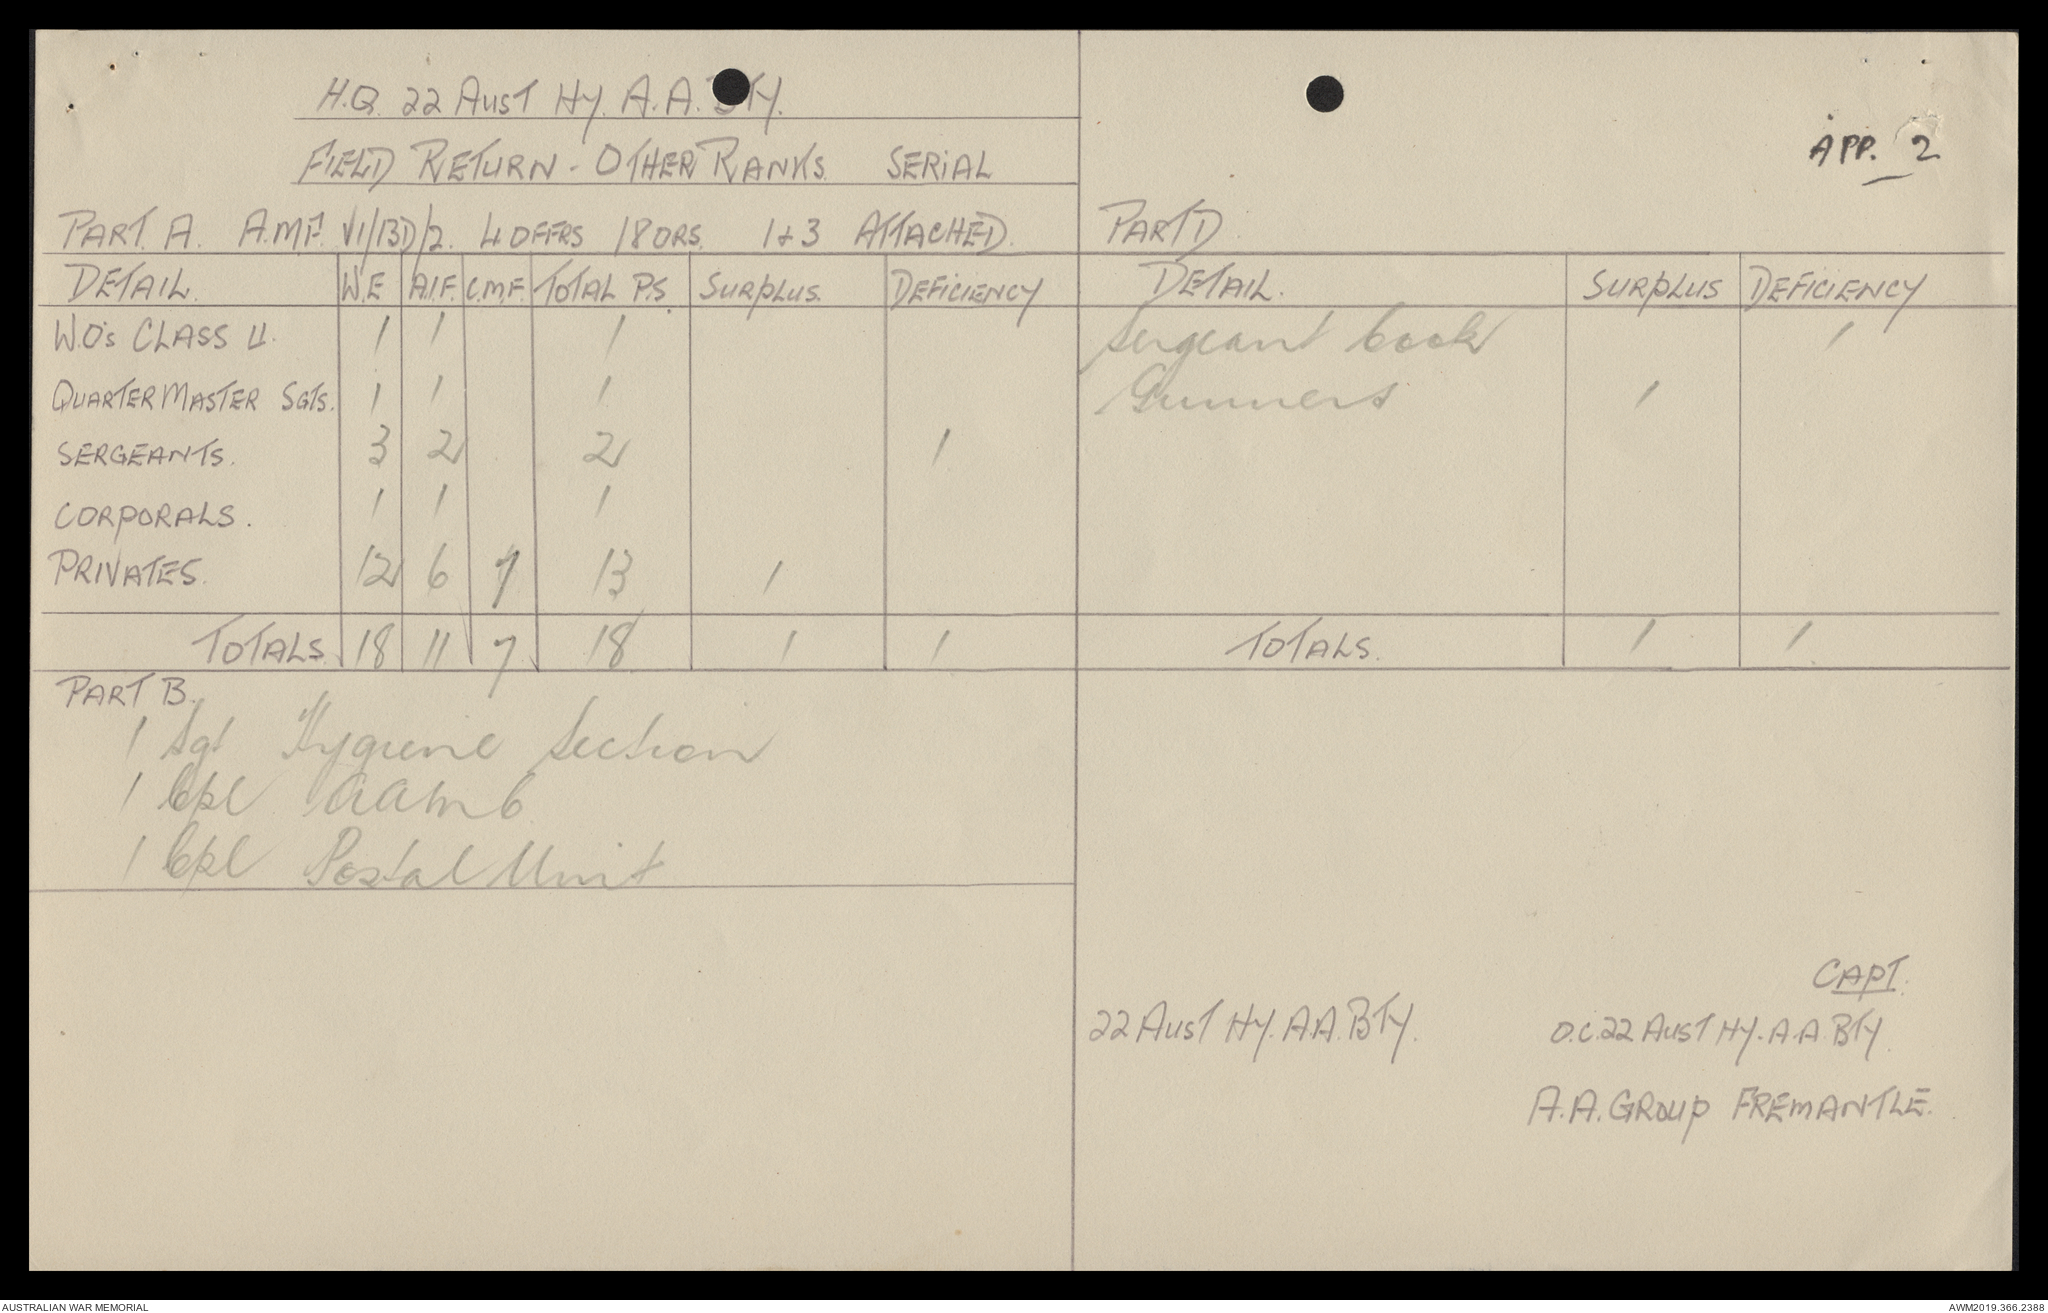 H.Q. 22 AUST HY. A.A. BTY.
FIELD RETURN - OTHER RANKS. SERIAL
PART. A. A.M.F. VI/13D/2. 4 OFFRS 18 ORS. 1+3 ATTACHED.
DETAIL. W.E A.I.F. C.M.F. TOTAL P.S. SURPLUS. DEFICIENCY
W.O's CLASS II. 1 1 1
QUARTER MASTER SGTS. 1 1 1
SERGEANTS. 3 2 2 1
CORPORALS. 1 1 1
PRIVATES. 12 6 7 13 1
TOTALS 18 11 7 18 1 1
PART B.
1 Sgt Hygiene Section
1 Cpl AAMC
1 Cpl Postal Unit
APP. 2
PART D.
DETAIL. SURPLUS DEFICIENCY
Sergeant Cook 1
Gunners 1
TOTALS. 1 1
CAPT.
22 AUST HY. A.A. BTY. O.C. 22 AUST HY. A.A. BTY.
A.A. GROUP FREMANTLE.
AUSTRALIAN WAR MEMORIAL AWM2019.366.2388